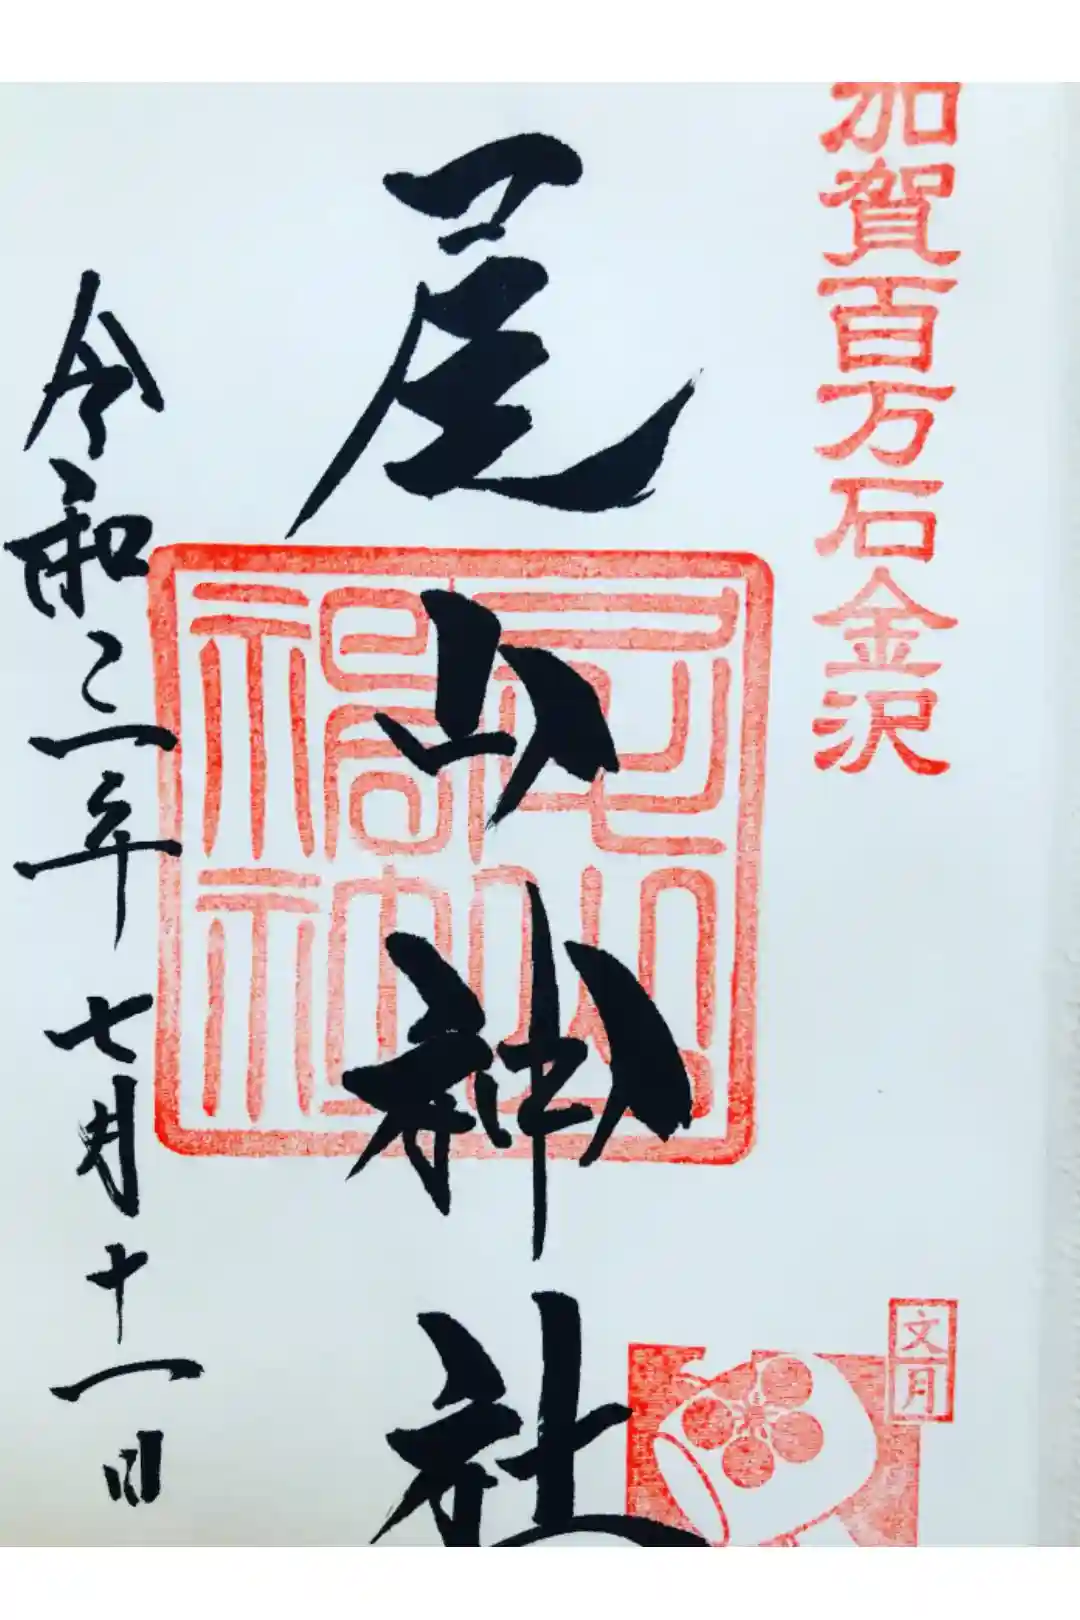 加賀百万石金沢
文月
尾山神社
尾山神社
令和三年七月十一日